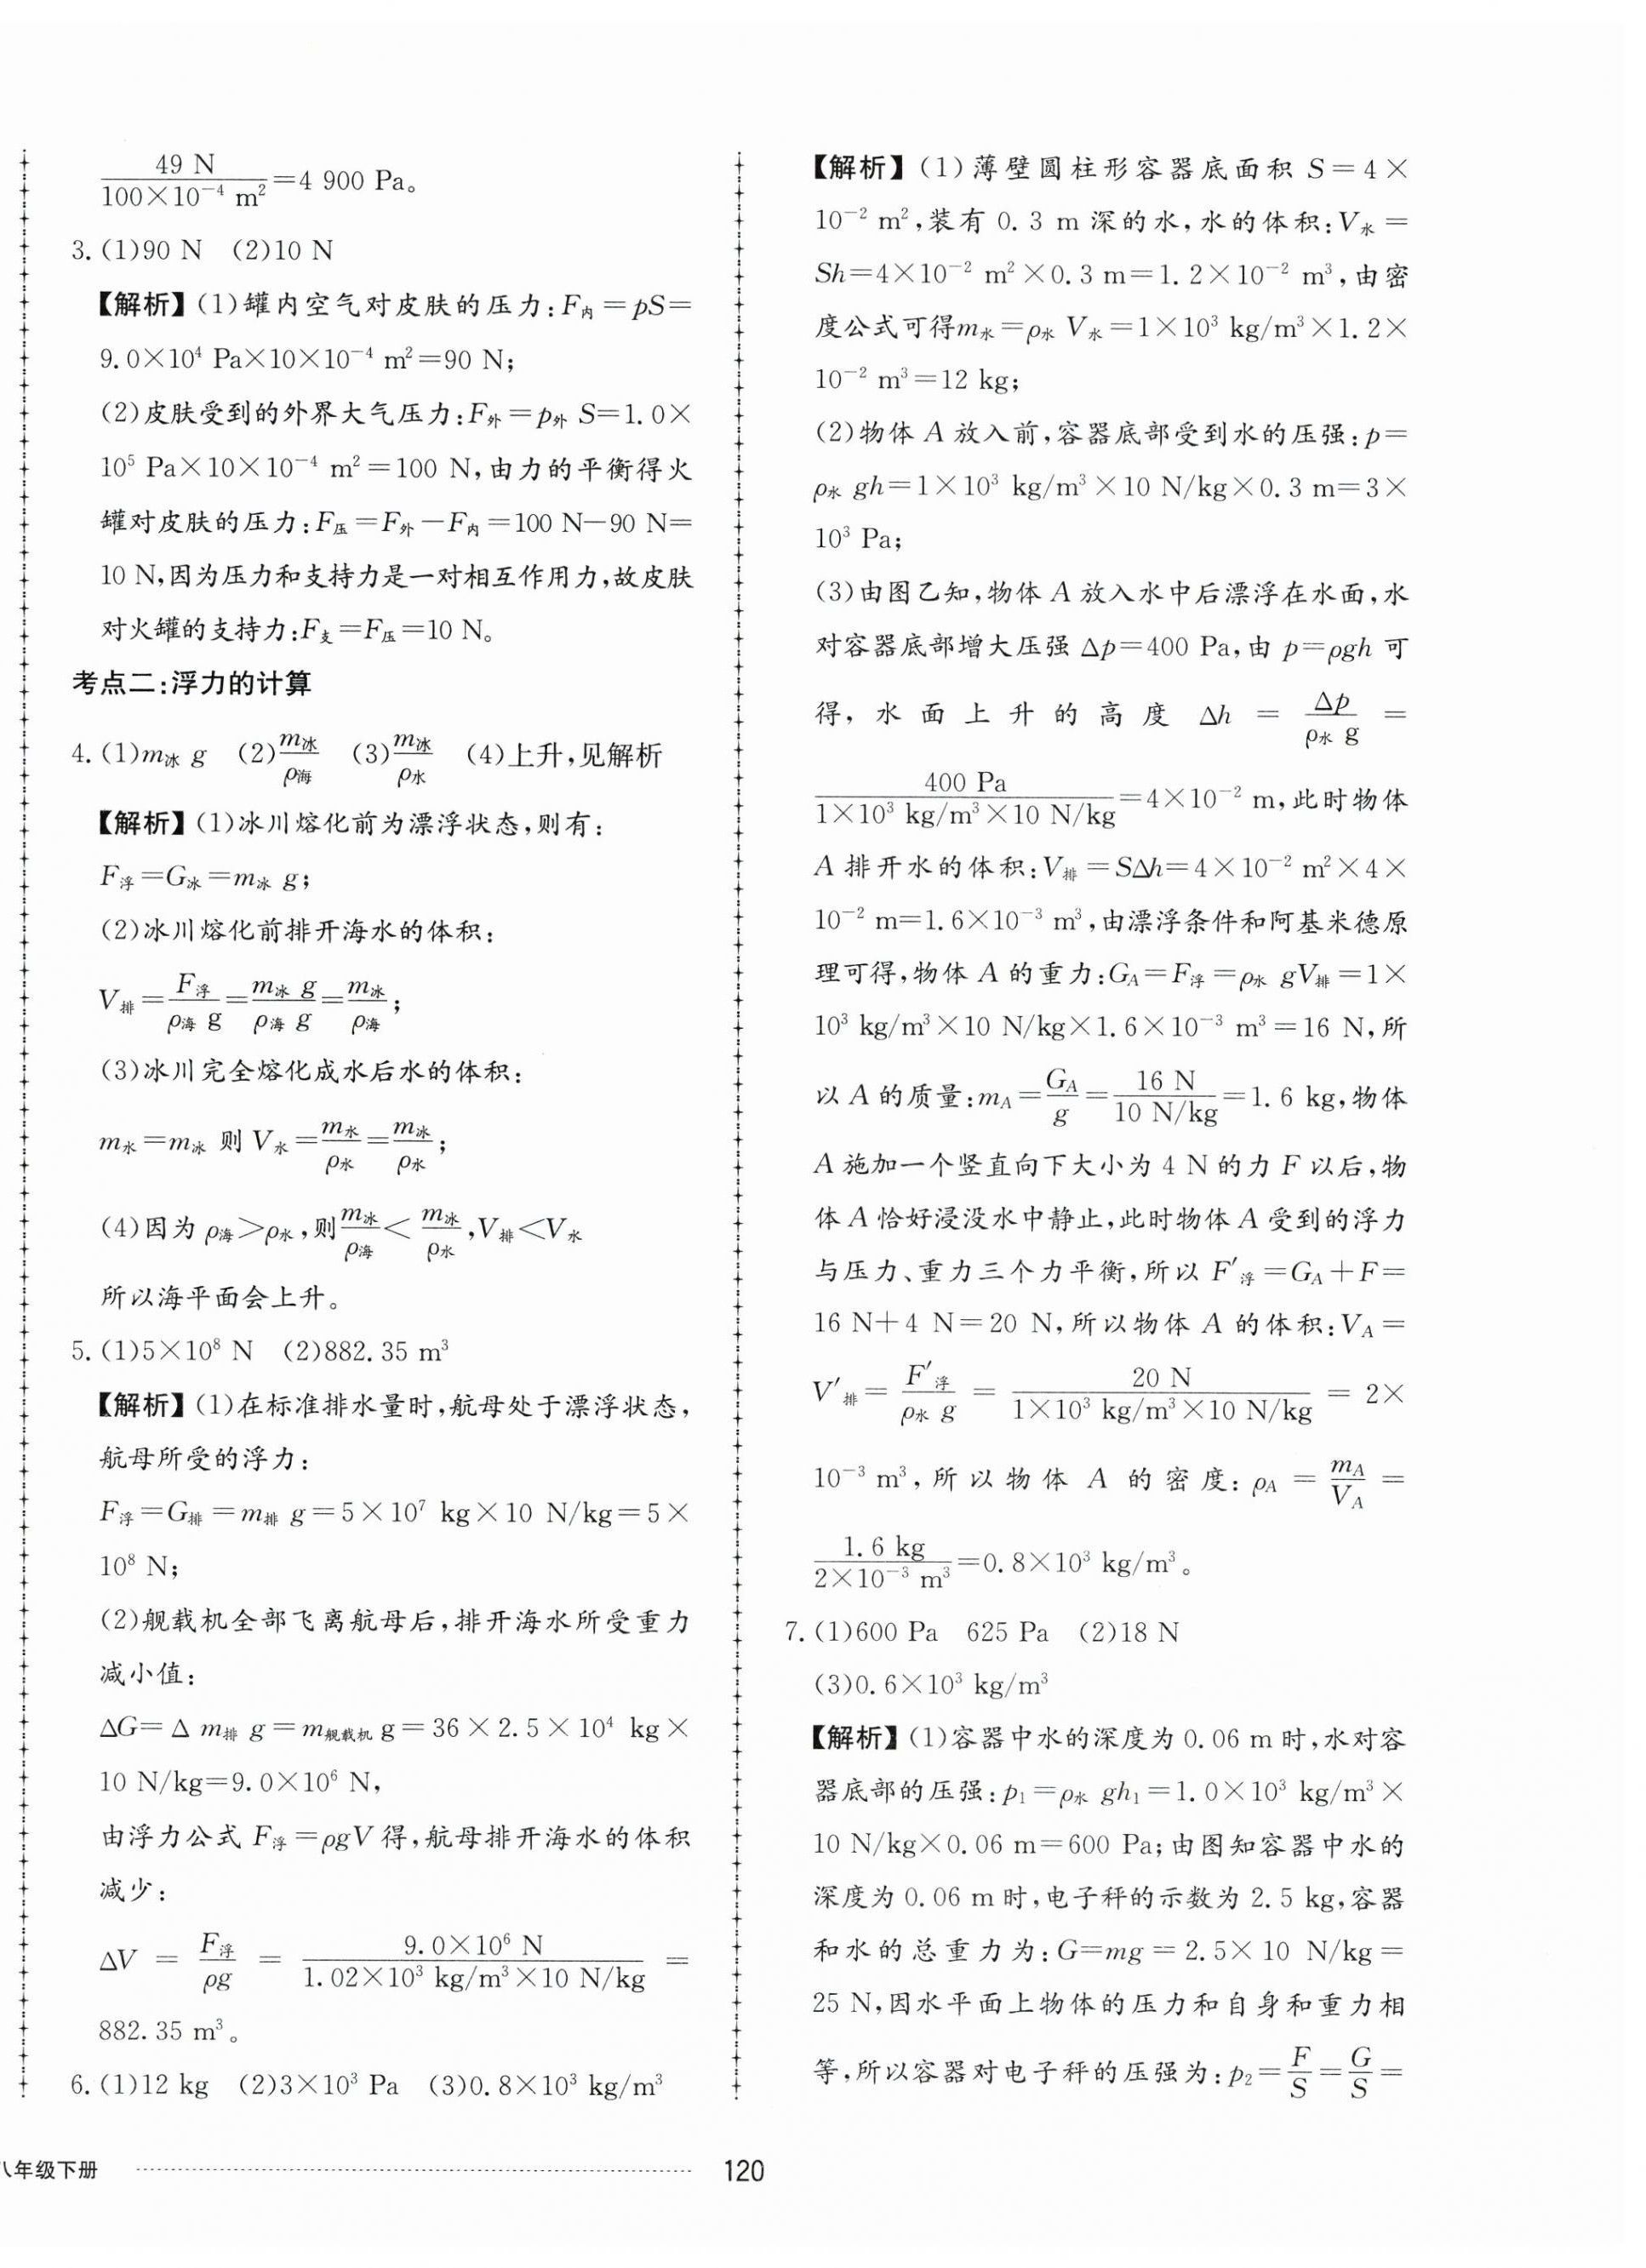 49 N
100×10⁻⁴ m² =4 900 Pa。
3. (1)90 N (2)10 N
【解析】(1)罐内空气对皮肤的压力:F内=pS=
9.0×10⁴ Pa×10×10⁻⁴ m²=90 N;
(2)皮肤受到的外界大气压力:F外=p外 S=1.0×
10⁵ Pa×10×10⁻⁴ m²=100 N,由力的平衡得火
罐对皮肤的压力:F压=F外-F内=100 N-90 N=
10 N,因为压力和支持力是一对相互作用力,故皮肤
对火罐的支持力:F支=F压=10 N。
考点二:浮力的计算
4. (1)m冰 g (2)m冰/ρ海 (3)m冰/ρ水 (4)上升,见解析
【解析】(1)冰川熔化前为漂浮状态,则有:
F浮=G冰=m冰 g;
(2)冰川熔化前排开海水的体积:
V排=F浮/ρ海 g=m冰 g/ρ海 g=m冰/ρ海;
(3)冰川完全熔化成水后水的体积:
m水=m冰 则 V水=m水/ρ水=m冰/ρ水;
(4)因为 ρ海>ρ水,则m冰/ρ海<m冰/ρ水,V排<V水
所以海平面会上升。
5. (1)5×10⁸ N (2)882.35 m³
【解析】(1)在标准排水量时,航母处于漂浮状态,
航母所受的浮力:
F浮=G排=m排 g=5×10⁷ kg×10 N/kg=5×
10⁸ N;
(2)舰载机全部飞离航母后,排开海水所受重力
减小值:
ΔG=Δ m排 g=m舰载机 g=36×2.5×10⁴ kg×
10 N/kg=9.0×10⁶ N,
由浮力公式 F浮=ρgV 得,航母排开海水的体积
减少:
ΔV = F浮/ρg = 9.0×10⁶ N/1.02×10³ kg/m³×10 N/kg =
882.35 m³。
6. (1)12 kg (2)3×10³ Pa (3)0.8×10³ kg/m³
【解析】(1)薄壁圆柱形容器底面积 S=4×
10⁻² m²,装有 0.3 m 深的水,水的体积:V水=
Sh=4×10⁻² m²×0.3 m=1.2×10⁻² m³,由密
度公式可得m水=ρ水 V水=1×10³ kg/m³×1.2×
10⁻² m³=12 kg;
(2)物体 A 放入前,容器底部受到水的压强:p=
ρ水 gh=1×10³ kg/m³×10 N/kg×0.3 m=3×
10³ Pa;
(3)由图乙知,物体 A 放入水中后漂浮在水面,水
对容器底部增大压强 Δp=400 Pa,由 p=ρgh 可
得,水面上升的高度 Δh = Δp/ρ水 g =
400 Pa/1×10³ kg/m³×10 N/kg=4×10⁻² m,此时物体
A 排开水的体积:V排=SΔh=4×10⁻² m²×4×
10⁻² m=1.6×10⁻³ m³,由漂浮条件和阿基米德原
理可得,物体 A 的重力:GA=F浮=ρ水 gV排=1×
10³ kg/m³×10 N/kg×1.6×10⁻³ m³=16 N,所
以 A 的质量:mA=GA/g=16 N/10 N/kg=1.6 kg,物体
A 施加一个竖直向下大小为 4 N 的力 F 以后,物
体 A 恰好浸没水中静止,此时物体 A 受到的浮力
与压力、重力三个力平衡,所以 F′浮=GA+F=
16 N+4 N=20 N,所以物体 A 的体积:VA=
V′排= F′浮/ρ水 g = 20 N/1×10³ kg/m³×10 N/kg = 2×
10⁻³ m³,所以物体 A 的密度:ρA = mA/VA =
1.6 kg/2×10⁻³ m³=0.8×10³ kg/m³。
7. (1)600 Pa 625 Pa (2)18 N
(3)0.6×10³ kg/m³
【解析】(1)容器中水的深度为 0.06 m 时,水对容
器底部的压强:p₁=ρ水 gh₁=1.0×10³ kg/m³×
10 N/kg×0.06 m=600 Pa;由图知容器中水的
深度为 0.06 m 时,电子秤的示数为 2.5 kg,容器
和水的总重力为:G=mg=2.5×10 N/kg=
25 N,因水平面上物体的压力和自身和重力相
等,所以容器对电子秤的压强为:p₂=F/S=G/S=
八年级下册
120